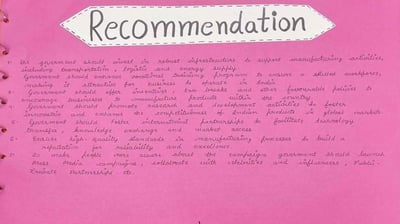 Recommendation
The government should invest in robust infrastructure to support manufacturing activities,
including transportation, logistic and energy supply.
Government should enhance vocational training program to ensure a skilled workforce,
making it attractive for business to operate in India.
Government should offer incentives, tax breaks and other favourable policies to
encourage businesses to manufacture products within the country.
Government should promote research and development activities to foster
innovation and enhance the competitiveness of Indian products in global market.
Government should foster international partnerships to facilitate technology
transfer, knowledge exchange and market access.
Ensure high quality standards in manufacturing processes to build a
reputation for reliability and excellence.
To make people more aware about the campaigns government should launch
Mass Media campaigns, collaborate with celebrities and influencers, Public-
Private Partnerships etc.